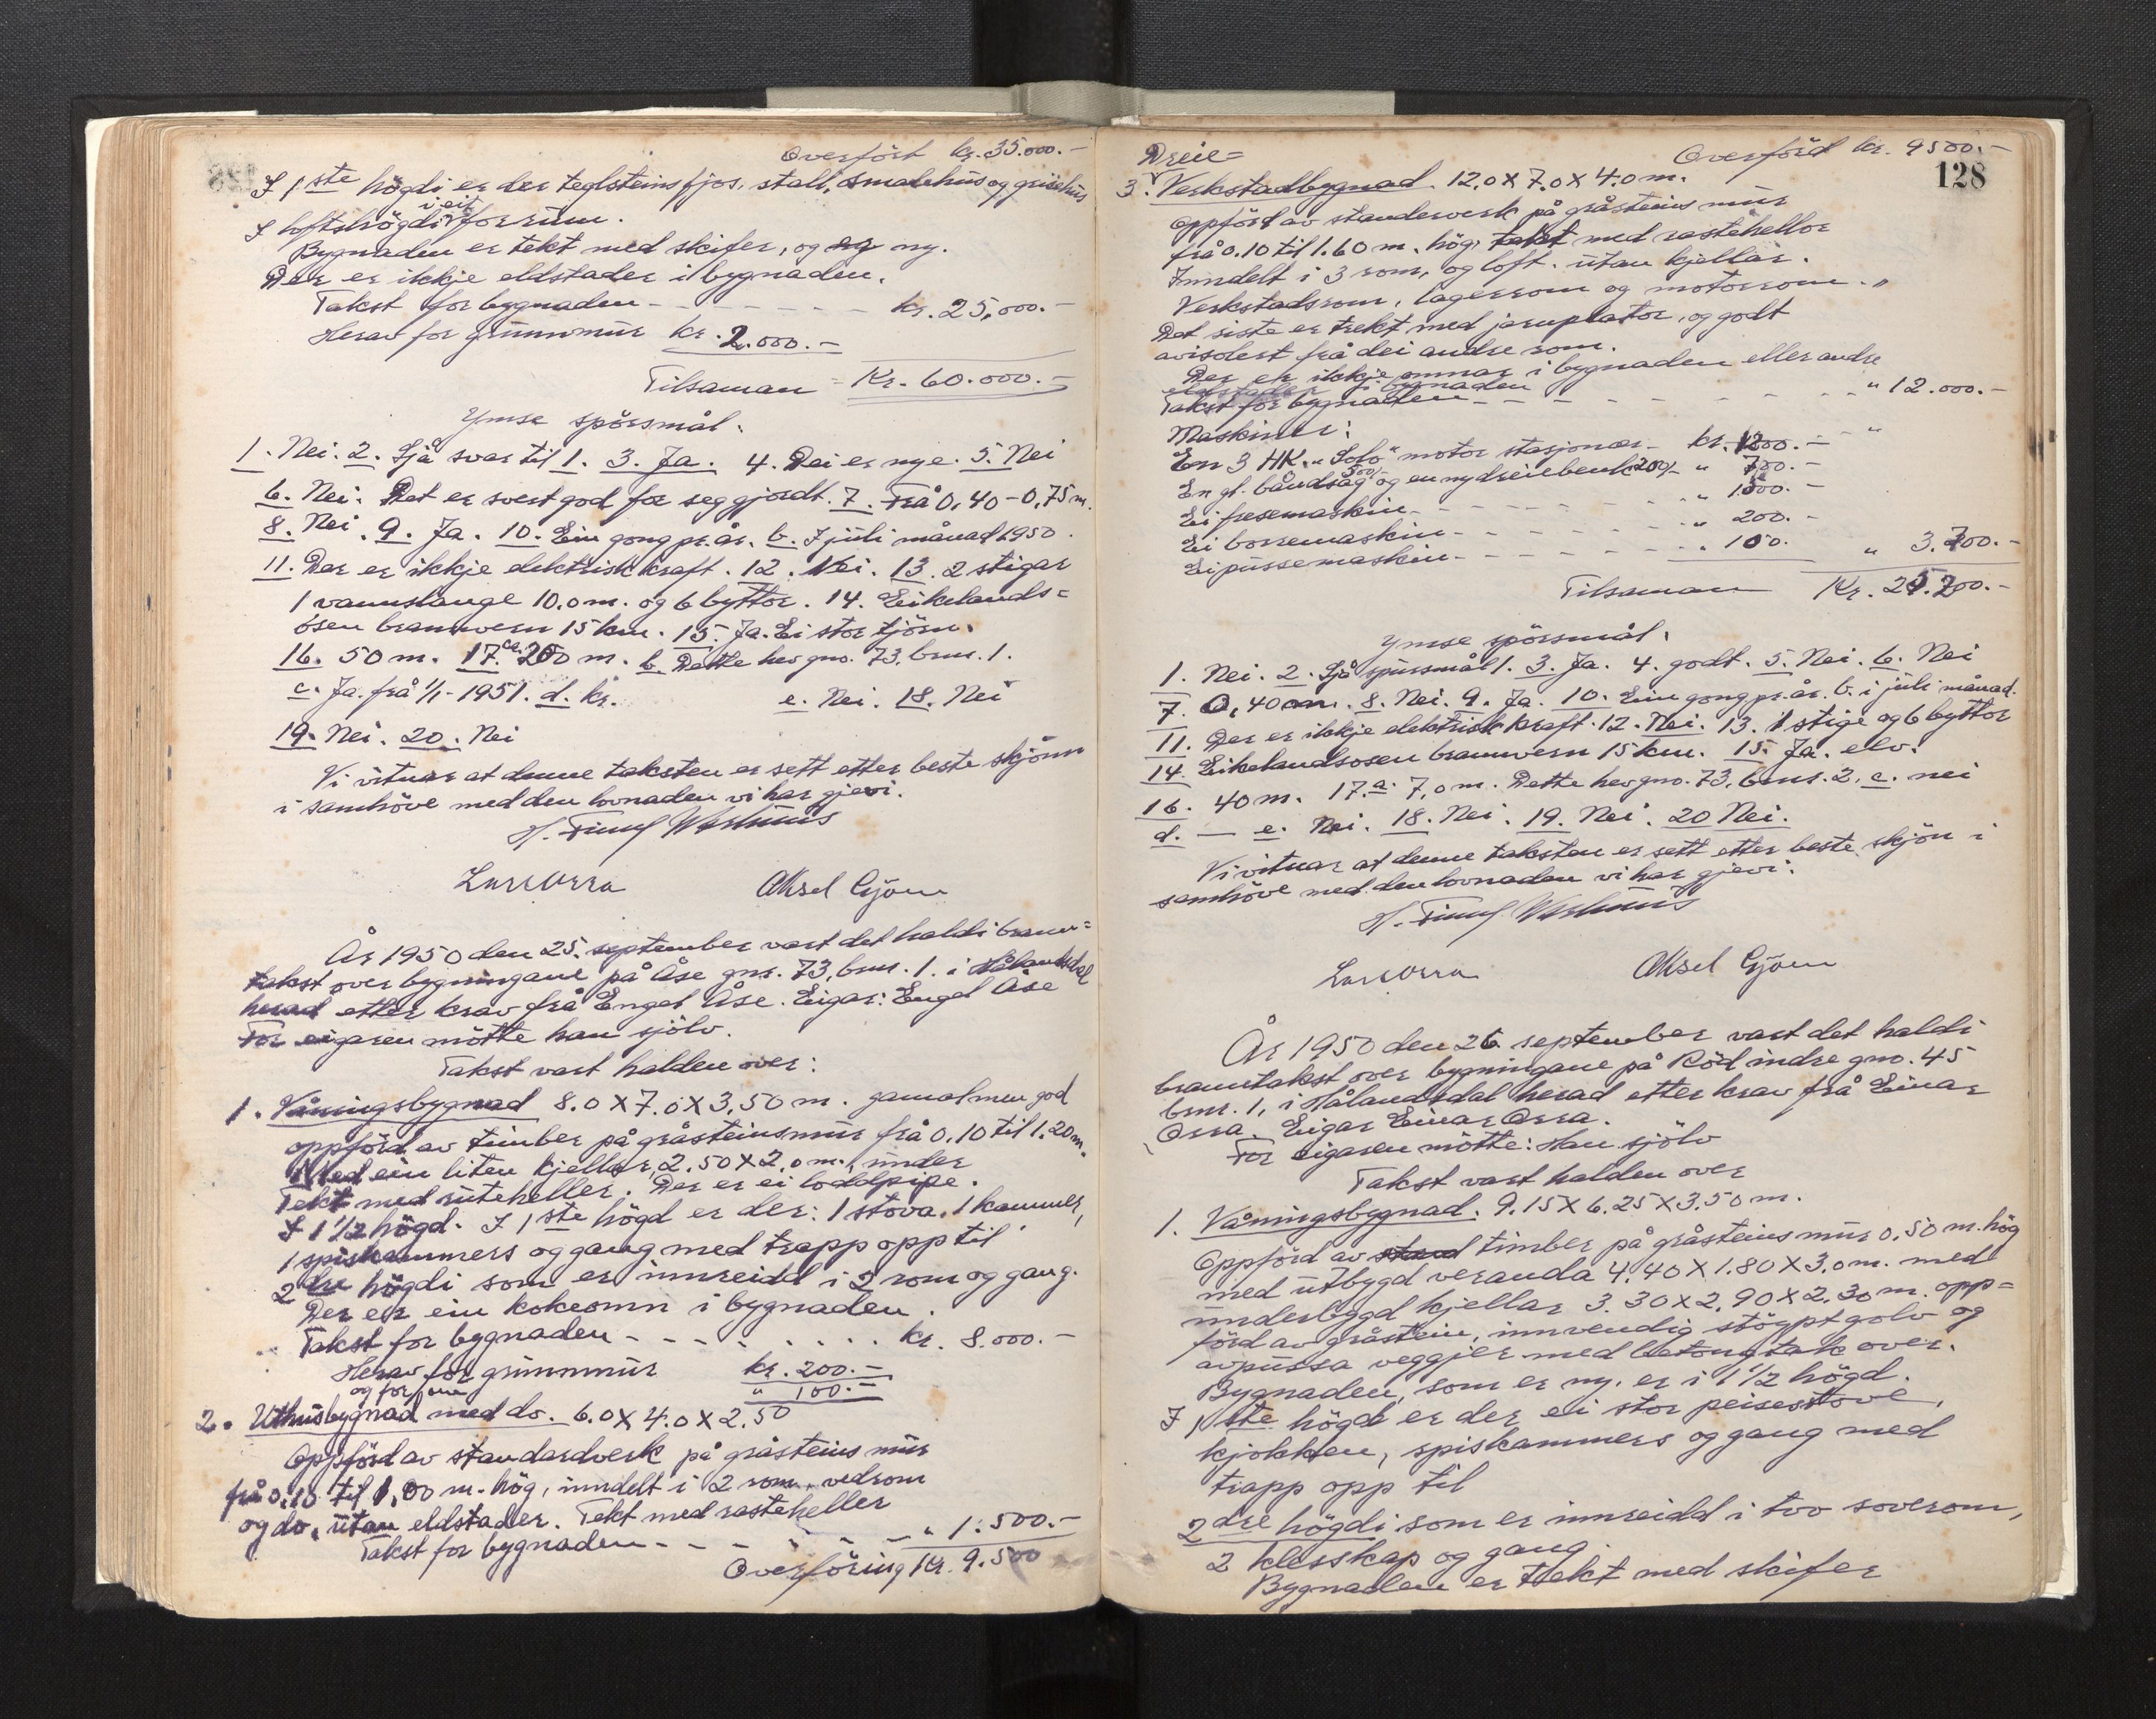 Overfört kr. 35.000.-
I 1ste högdi er der teglsteins fjos, stall, smalehus og grisehus
I loftshögdi i eit forrum.
Bygnaden er tekt med skifer, og ny.
Der er ikkje eldstader i bygnaden.
Takst for bygnaden - - - - - - kr. 25,000.-
Herav for grunnmur kr. 2.000.-
Tilsaman = Kr. 60.000.-
Ymse spörsmål.
1. Nei. 2. Sjå svar til 1. 3. Ja. 4. Dei er nye. 5. Nei
6. Nei. Det er svert god for seggjordt. 7. Frå 0,40 - 0,75 m.
8. Nei. 9. Ja. 10. Ein gong pr. år. b. I juli månad 1950.
11. Der er ikkje elektrisk kraft. 12. Nei. 13. 2 stigar
1 vannslange 10.0 m. og 6 byttor. 14. Eikelands=
osen brannvern 15 km. 15. Ja. Ei stor tjörn.
16. 50 m. 17. ca. 200 m. b. Dette hev gno. 73, bnr. 1.
c. Ja. frå 1/1 - 1951. d. kr. e. Nei. 18. Nei
19. Nei. 20. Nei
Vi vitnar at denne taksten er sett etter beste skjönn
i samhöve med den lovnaden vi har gjevi.
Lars Orra Aksel Gjøen
År 1950 den 25. september vart det haldi brann=
takst over bygningane på Åse gnr. 73, bnr. 1. i Hålandsdal
herad etter krav frå Engel Åse. Eigar: Engel Åse
For eigaren mötte han sjölv.
Takst vart halden over:
1. Våningsbygnad 8.0 X 7.0 X 3,50 m. gamal men god
oppförd av timber på gråsteinsmur frå 0.10 til 1.20 m.
Med ein liten kjellar, 2.50 X 2,0 m. under
Tekt med ruteheller. Der er ei loddpipe.
I 1 1/2 högd. I 1ste högd er der: 1 stova, 1 kammer,
1 spiskammers og gang med trapp opp til
2dre högdi som er innreidd i 2 rom og gang.
Der er ein kokeomn i bygnaden.
Takst for bygnaden - - - . . . . . kr. 8.000.-
Herav for grunnmur kr. 200.-
og for " 100.-
2. Uthusbygnad med do. 6.0 X 4.0 X 2.50
Oppförd av standardverk på gråsteins mur
frå 0.10 til 1,00 m. hög, inndelt i 2 rom, vedrom
og do, utan eldstader. Tekt med rasteheller
Takst for bygnaden - - - - - - " 1.500.-
Overföring Kr. 9.500
Overförd kr. 9500.-
128
Dreie=
3. Verkstadbygnad. 12.0 X 7.0 X 4.0 m.
Oppförd av standerverk på gråsteins mur
frå 0.10 til 1.60 m. hög, tekt med rastehellor
Inndelt i 3 rom, og loft. utan kjellar.
Verkstadsrom, lagerrom og motorrom.
Det siste er trekt med jernplator, og godt
avisolert frå dei andre rom.
Der er ikkje omnar i bygnaden eller andre
eldstader i bygnaden
Takst for bygnaden - - - - - - - " 12.000.-
Maskiner:
Ein 3 HK. "Solo" motor stasjonær - kr. 1200.-
En gl. båndsag 500/- og en ny dreiebenk 200/- " 700.-
Ei fresemaskin - - - - - - " 1500.-
Ei borremaskin - - - - - - " 200.-
Ei pussemaskin - - - - - - " 100. " 3.700.-
Tilsaman Kr. 25.200.-
Ymse spörsmål.
1. Nei. 2. Sjå spursmål 1. 3. Ja. 4. godt. 5. Nei. 6. Nei
7. 0,40 m. 8. Nei. 9. Ja. 10. Ein gong pr. år. b. i juli månad.
11. Der er ikkje elektrisk kraft. 12. Nei. 13. 1 stige og 6 byttor
14. Eikelandsosen brannvern 15 km. 15. Ja. elv.
16. 40 m. 17. a. 7,0 m. Dette hev gno. 73, bnr. 2. c. nei
d. — e. Nei. 18. Nei. 19. Nei. 20 Nei.
Vi vitnar at denne taksten er sett etter beste skjön i
samhöve med den lovnaden vi har gjevi.
Lars Orra Aksel Gjøen
År 1950 den 26 september vart det haldi
branntakst over bygningane på Röd indre gno. 45
bnr. 1, i Hålandsdal herad etter krav frå Einar
Orra. Eigar Einar Orra.
For eigaren mötte: Han sjölv
Takst vart halden over
1. Våningsbygnad. 9.15 X 6.25 X 3.50 m.
Oppförd av timber på gråsteins mur 0.50 m. hög
med utbygd veranda 4.40 X 1.80 X 3.0 m. med
underbygd kjellar 3.30 X 2.90 X 2.30 m. opp=
förd av gråstein, innvendig stöypt golv og
avpussa veggjer med betongtak over.
Bygnaden, som er ny, er i 1 1/2 högd.
I 1ste högdi er der ei stor peisestove,
kjökken, spiskammers og gang med
trapp opp til
2dre högdi som er innreidd i tvo soverom,
2 klesskap og gang.
Bygnaden er tekt med skifer